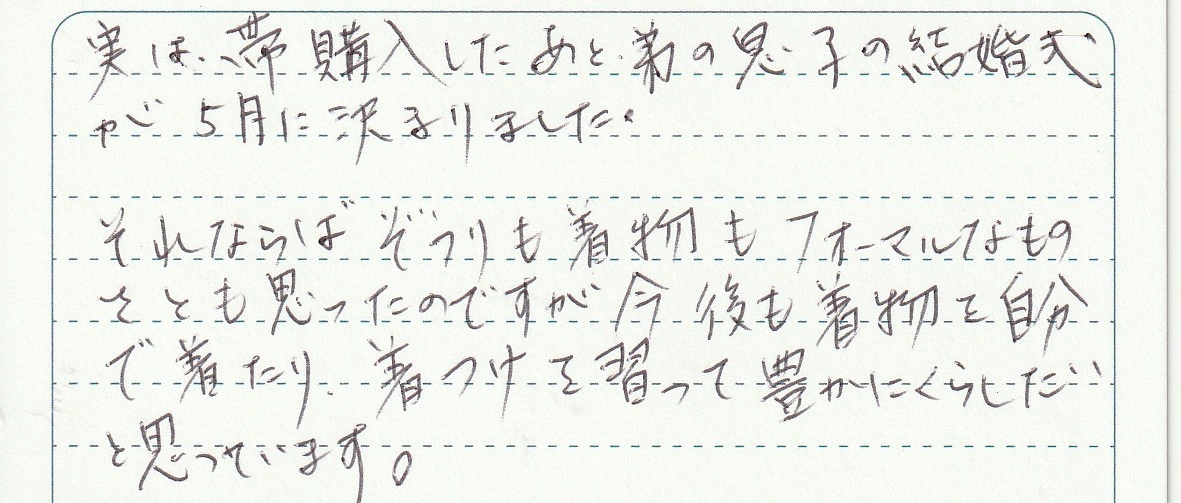 実は、帯購入したあと、弟の息子の結婚式
が5月に決まりました。
それならばぞうりも着物もフォーマルなもの
をとも思ったのですが今後も着物を自分
で着たり、着つけを習って豊かにくらしたい
と思っています。